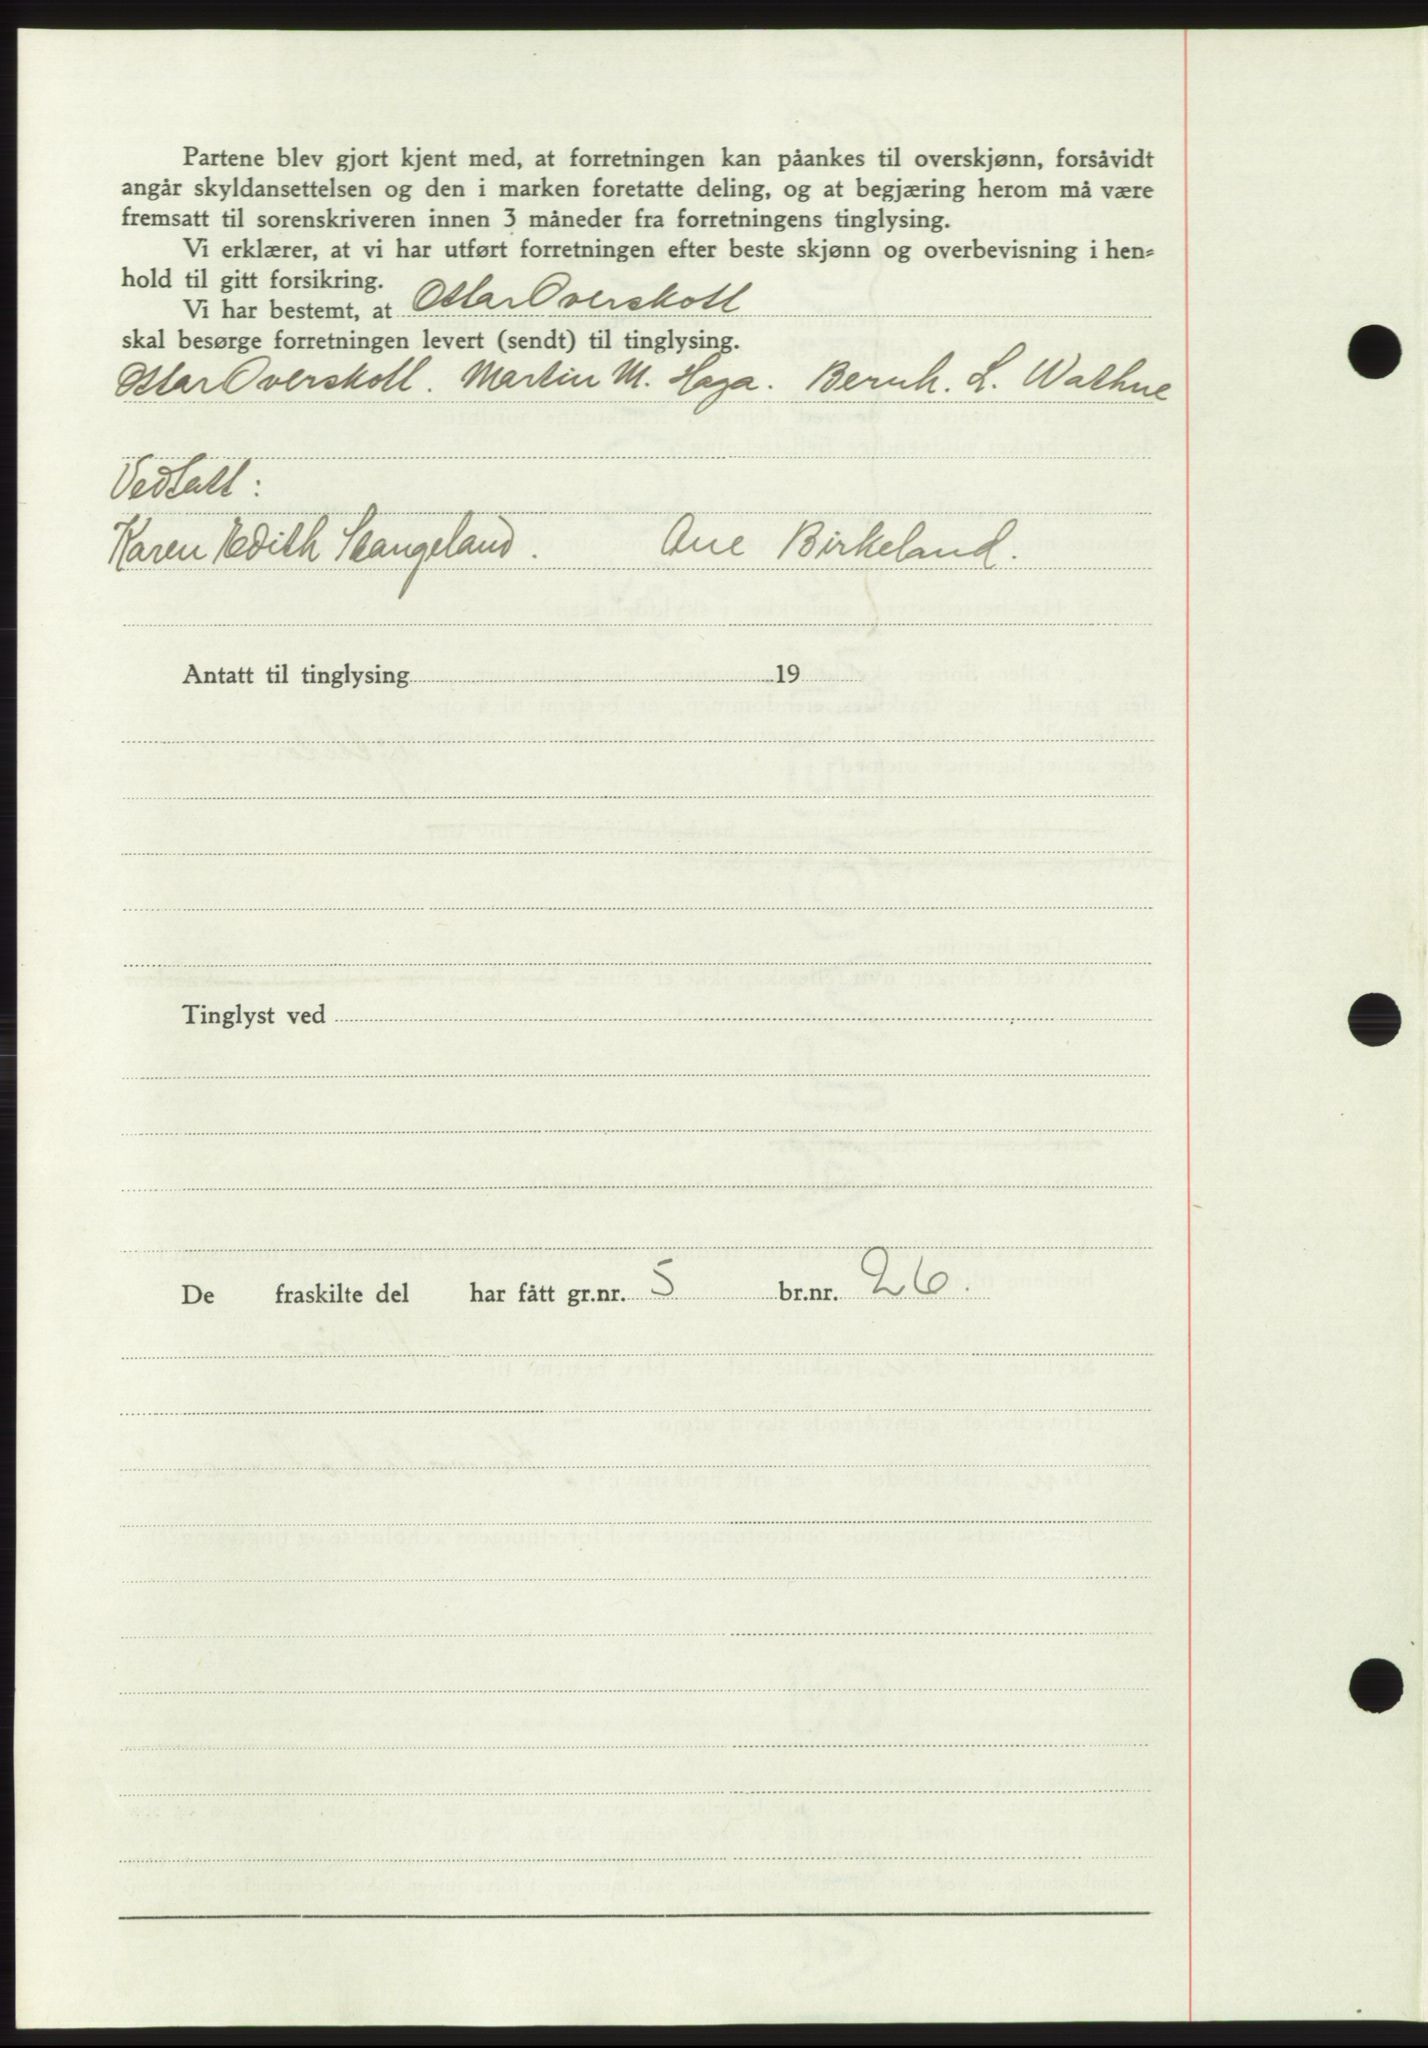 Partene blev gjort kjent med, at forretningen kan påankes til overskjønn, forsåvidt
angår skyldansettelsen og den i marken foretatte deling, og at begjæring herom må være
fremsatt til sorenskriveren innen 3 måneder fra forretningens tinglysing.
Vi erklærer, at vi har utført forretningen efter beste skjønn og overbevisning i hen-
hold til gitt forsikring.
Vi har bestemt, at Ottar Overskott
skal besørge forretningen levert (sendt) til tinglysing.
Ottar Overskott. Martin M. Haga. Bernh. L. Wathne
Vedtatt:
Karen Edith Stangeland. Ane Birkeland.
Antatt til tinglysing 19
Tinglyst ved
De fraskilte del har fått gr.nr. 5 br.nr. 26.